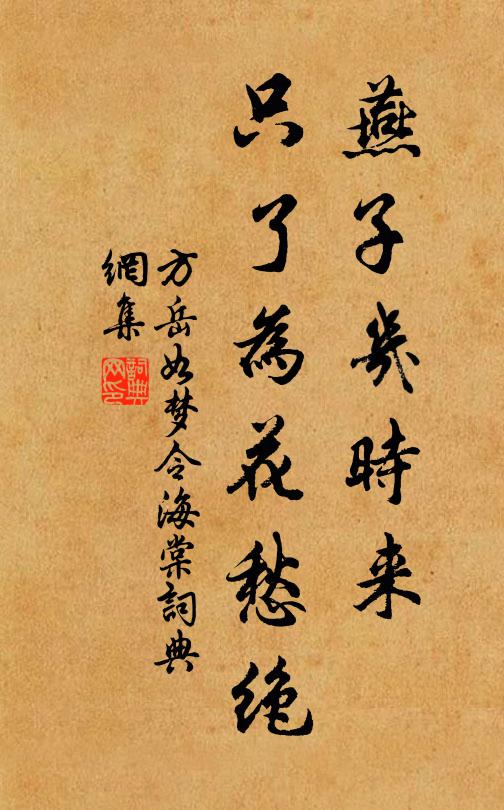 燕子幾時来
只了為花愁絶
方岳如梦令海棠詞典
網集
詞典
网印